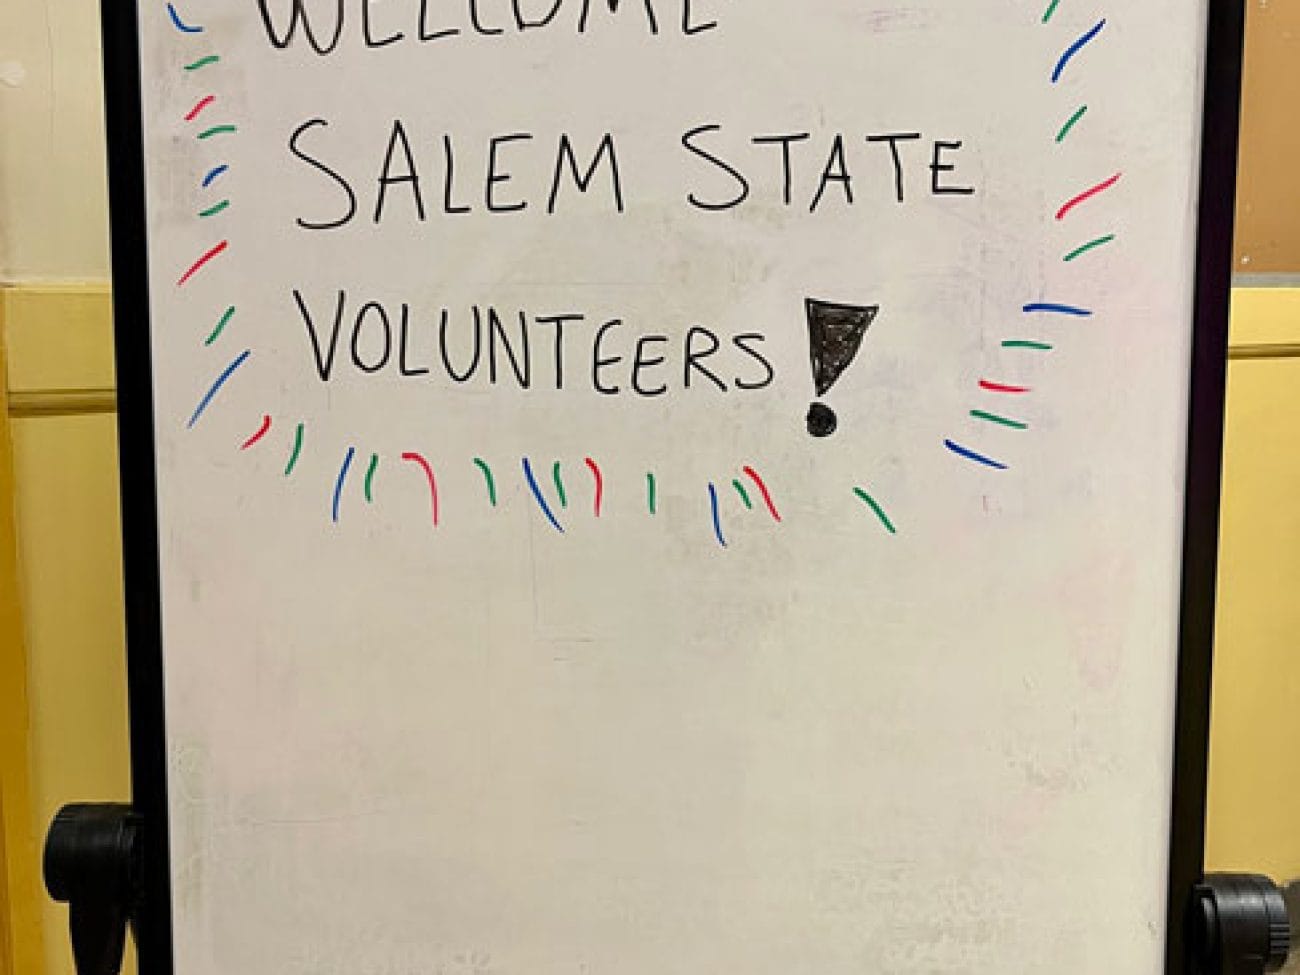 WELCOME
SALEM STATE
VOLUNTEERS!